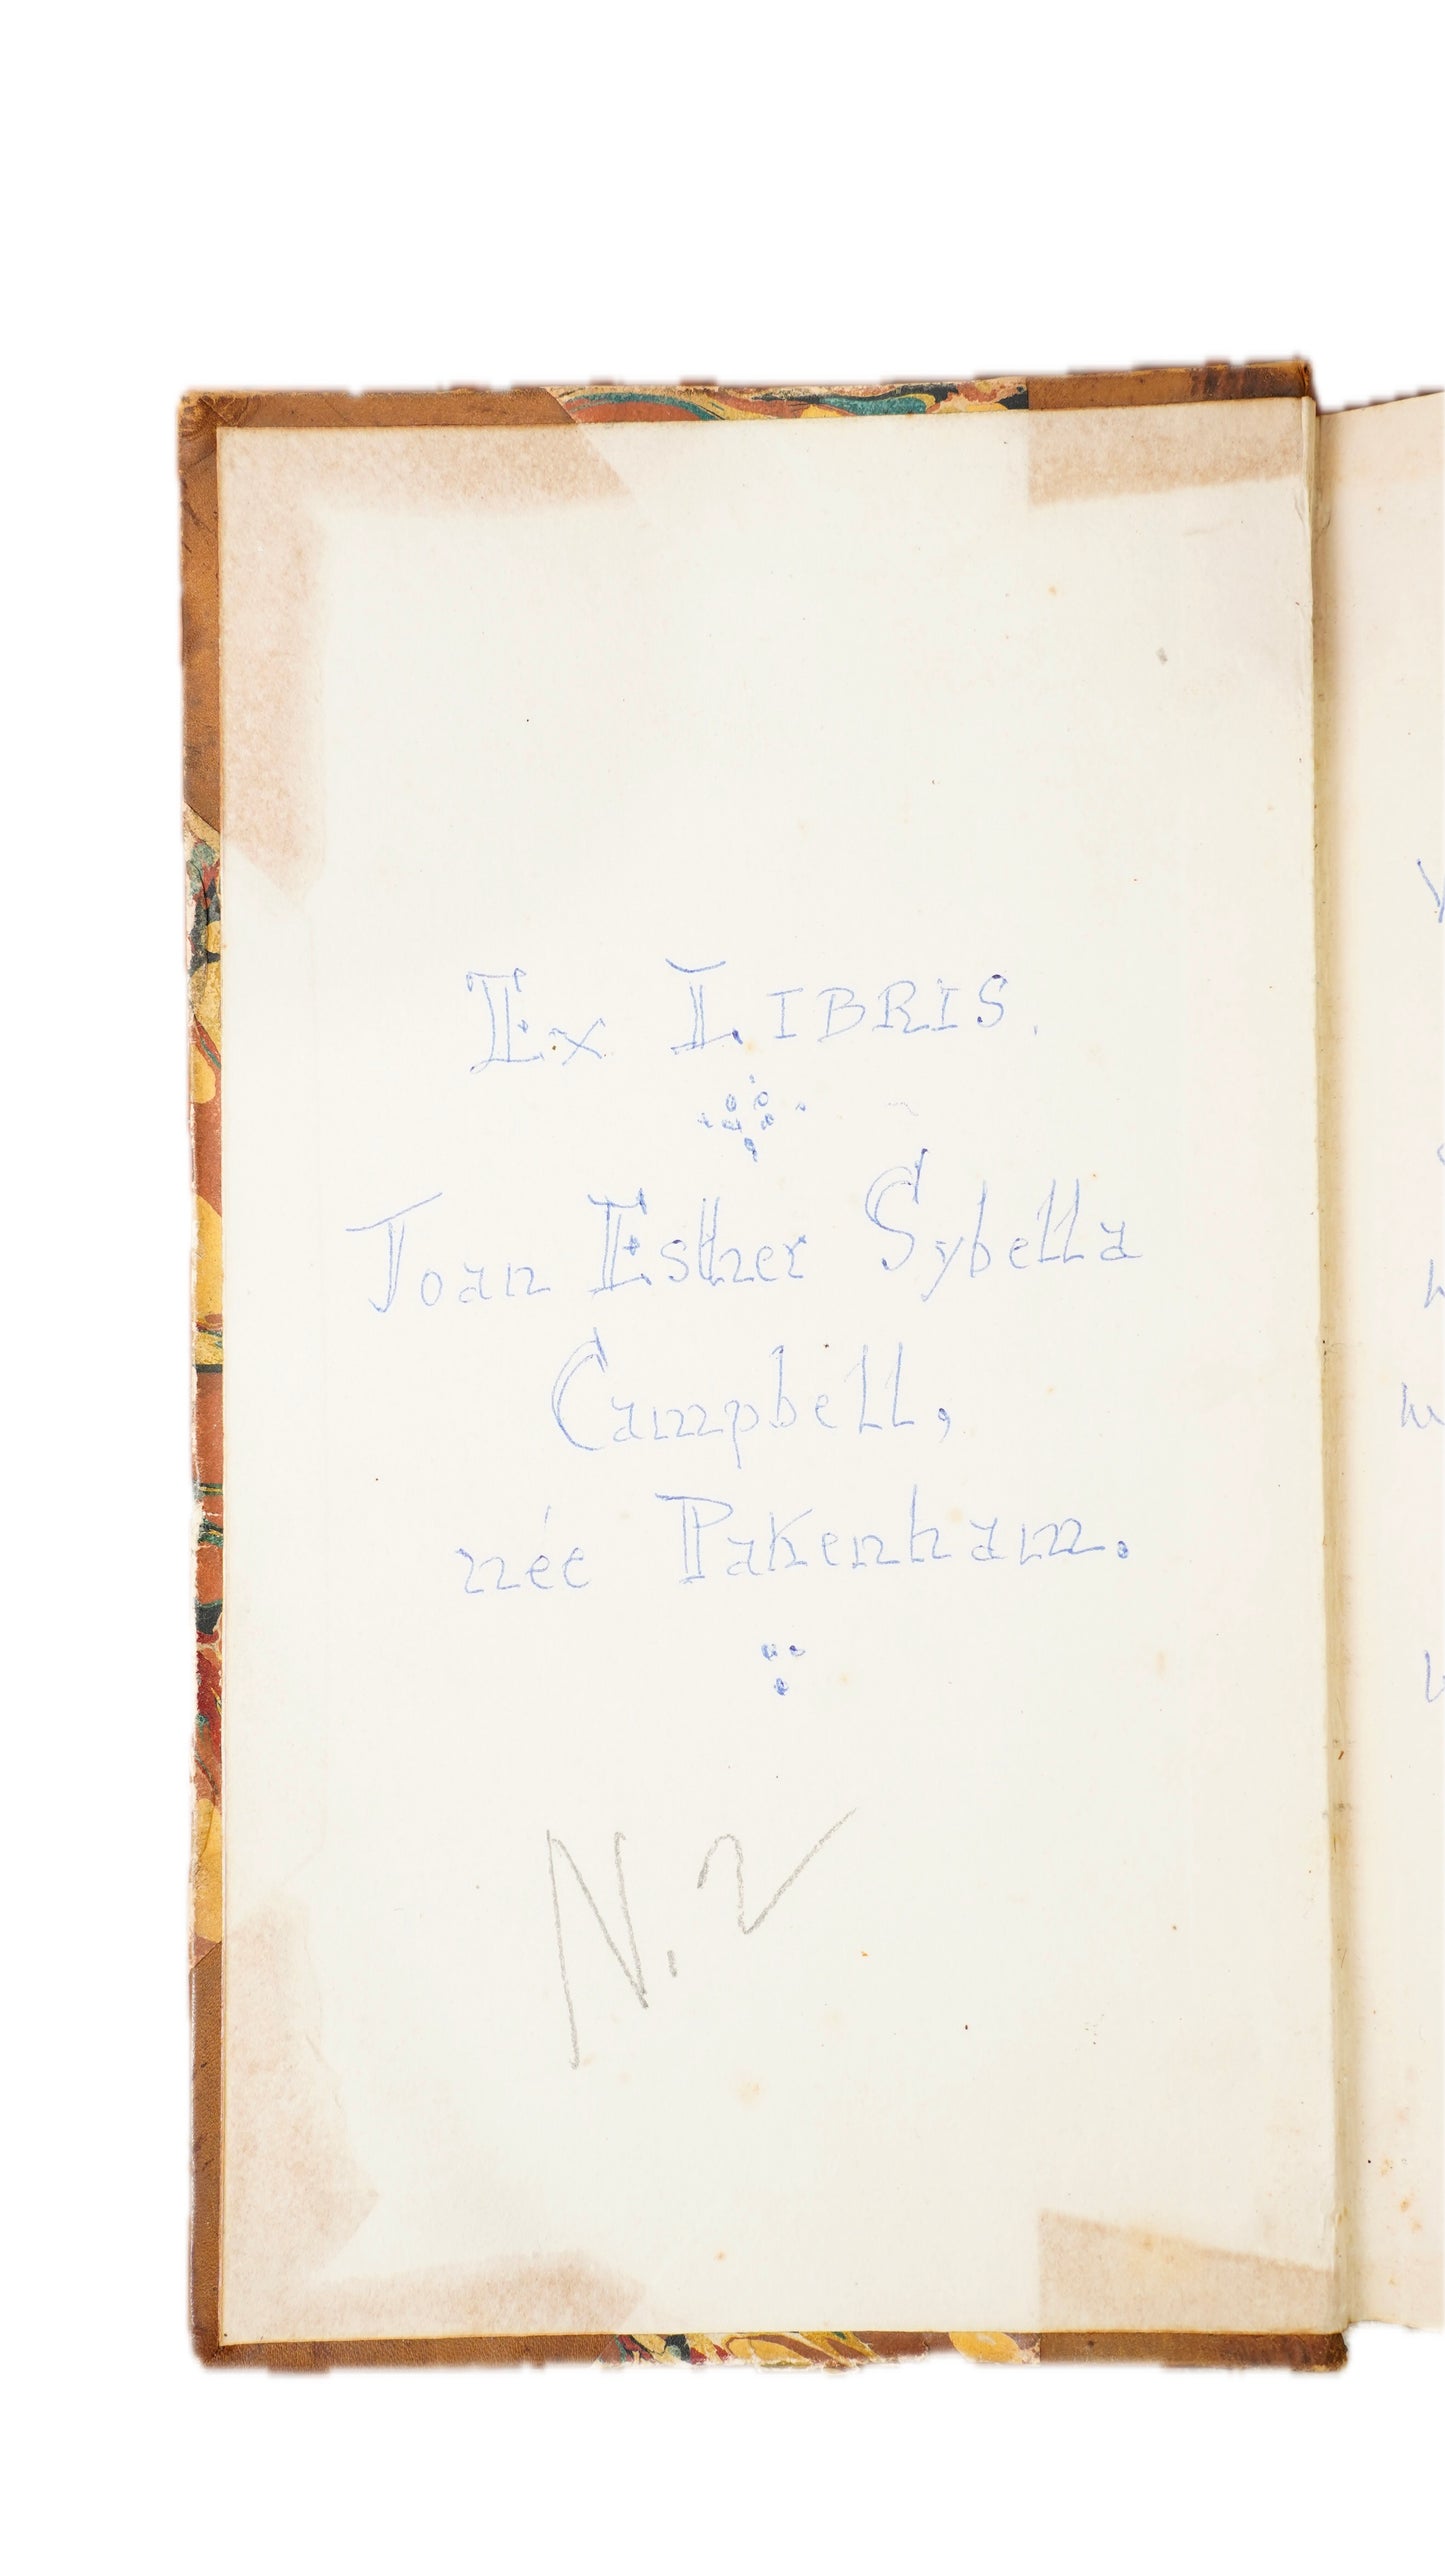 Ex LIBRIS.
Joan Esther Sybella
Campbell,
née Pakenham.
N. 2